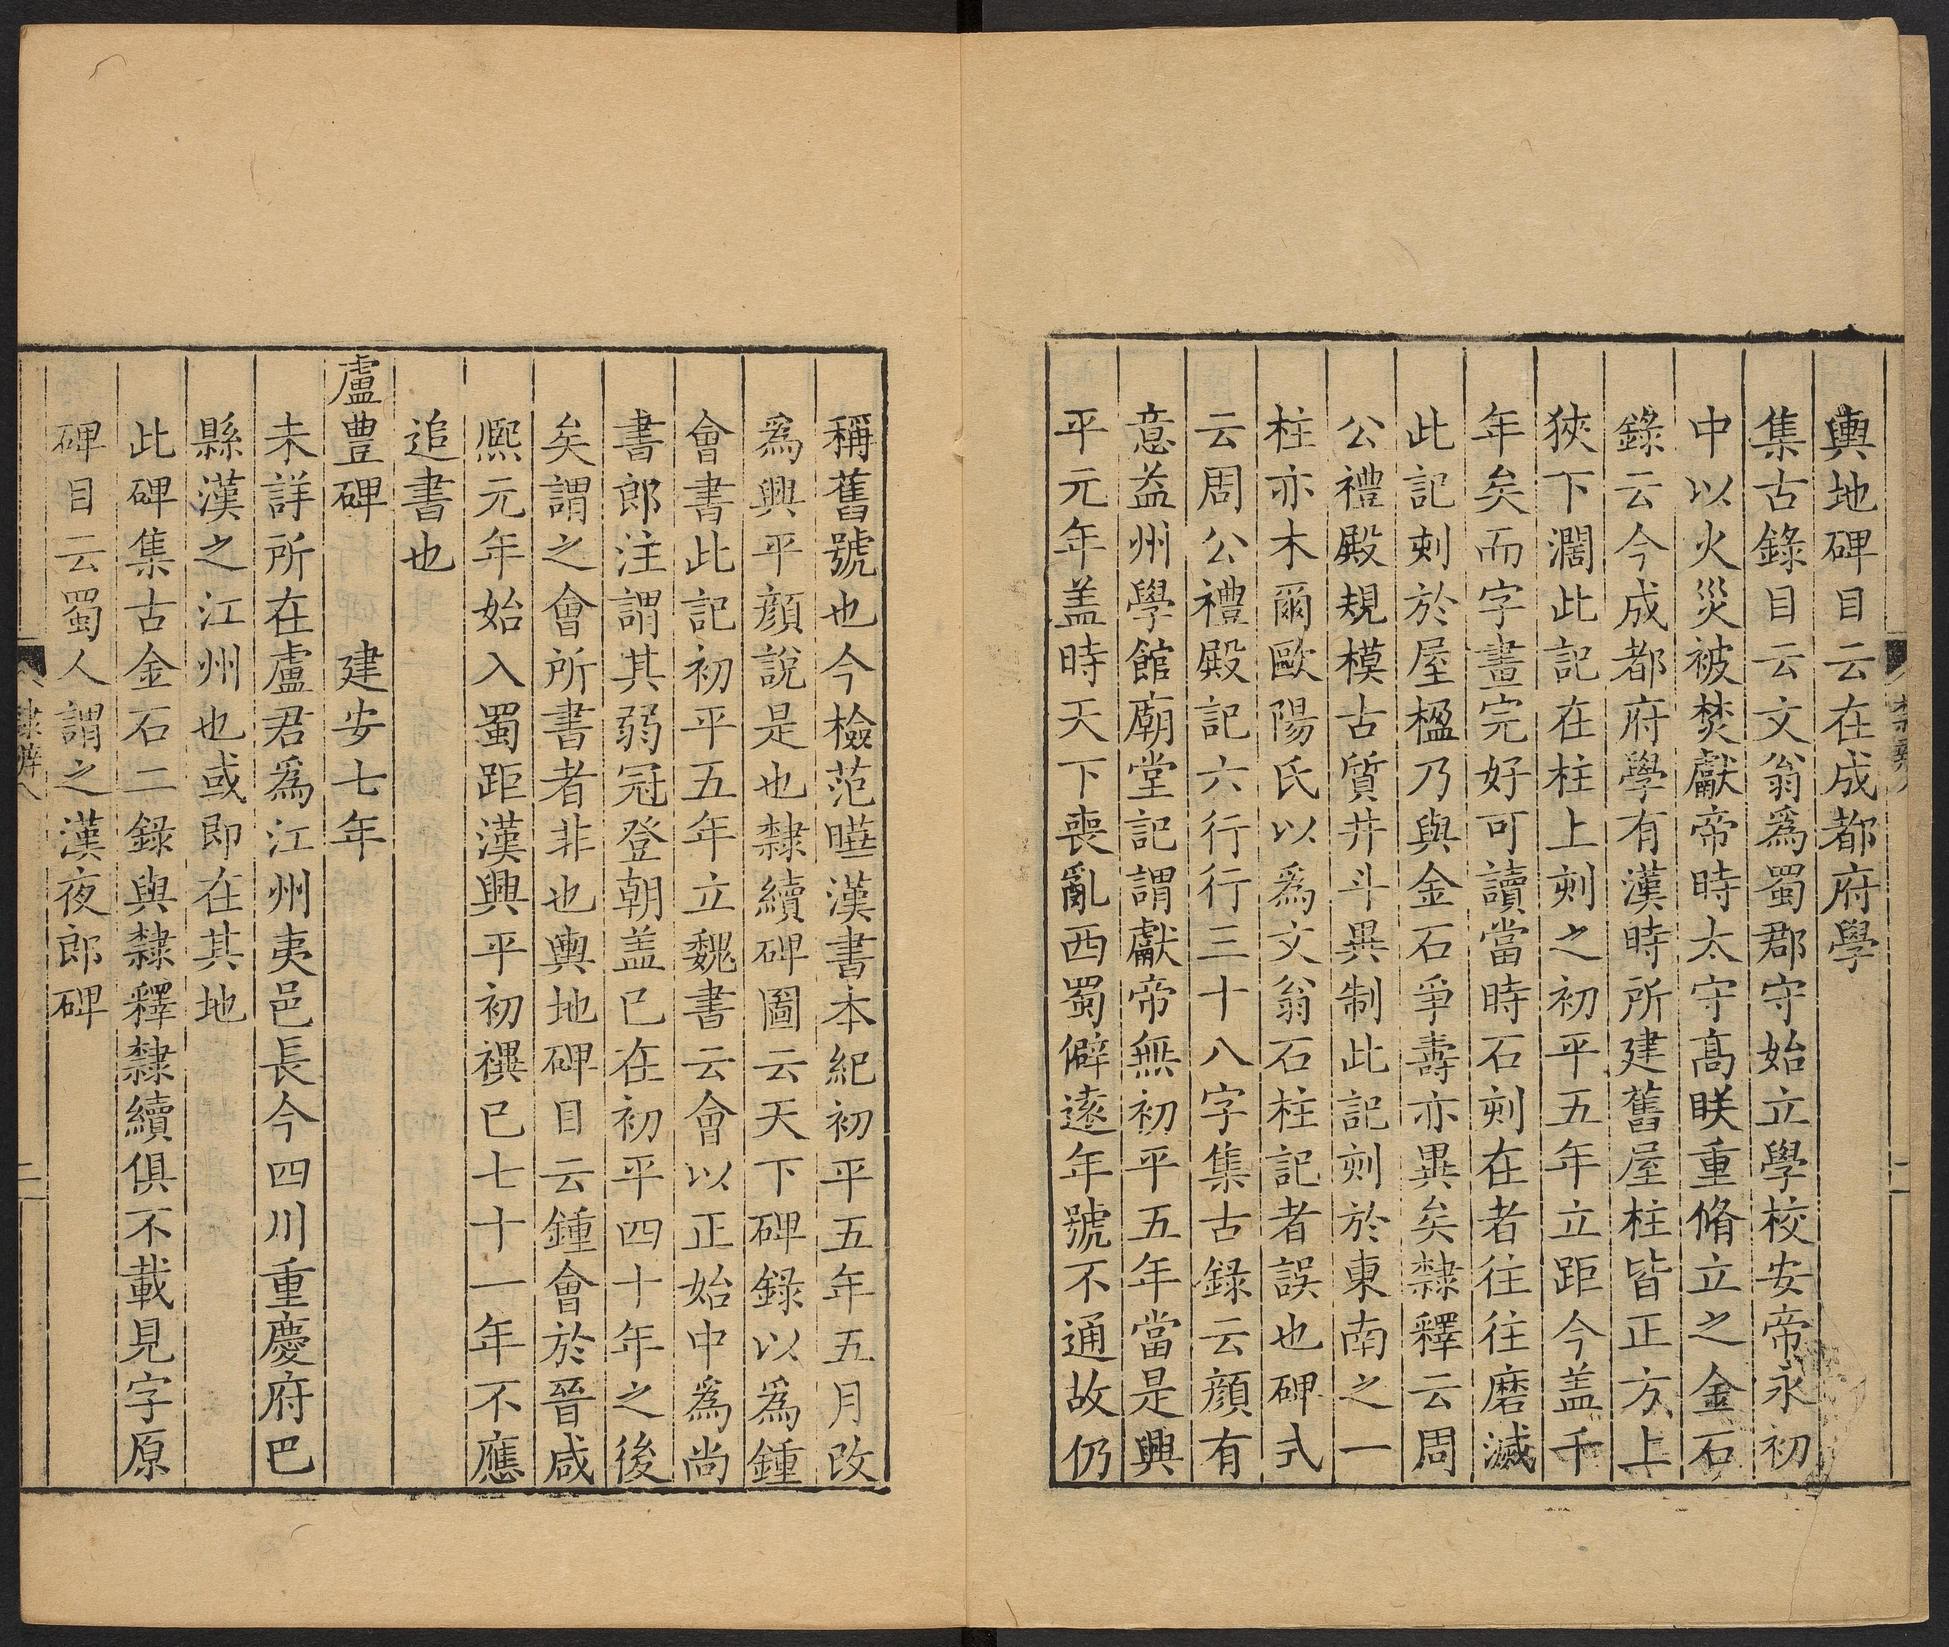 輿地碑目云在成都府學
集古錄目云文翁爲蜀郡守始立學校安帝永初
中以火災被焚獻帝時太守髙䀢重脩立之金石
錄云今成都府學有漢時所建舊屋柱皆正方上
狹下濶此記在柱上刻之初平五年立距今盖千
年矣而字畫完好可讀當時石刻在者往往磨滅
此記刻於屋楹乃與金石爭壽亦異矣隸釋云周
公禮殿規模古質井斗異制此記刻於東南之一
柱亦木爾歐陽氏以爲文翁石柱記者誤也碑式
云周公禮殿記六行行三十八字集古録云顔有
意益州學館廟堂記謂獻帝無初平五年當是興
平元年盖時天下喪亂西蜀僻逺年號不通故仍
稱舊號也今檢范曄漢書本紀初平五年五月改
爲興平顔說是也隸續碑圖云天下碑錄以爲鍾
會書此記初平五年立魏書云會以正始中爲尚
書郎注謂其弱冠登朝盖已在初平四十年之後
矣謂之會所書者非也輿地碑目云鍾會於晉咸
熈元年始入蜀距漢興平初禩已七十一年不應
追書也
盧豊碑 建安七年
未詳所在盧君爲江州夷邑長今四川重慶府巴
縣漢之江州也或即在其地
此碑集古金石二錄與隸釋隸續俱不載見字原
碑目云蜀人謂之漢夜郎碑